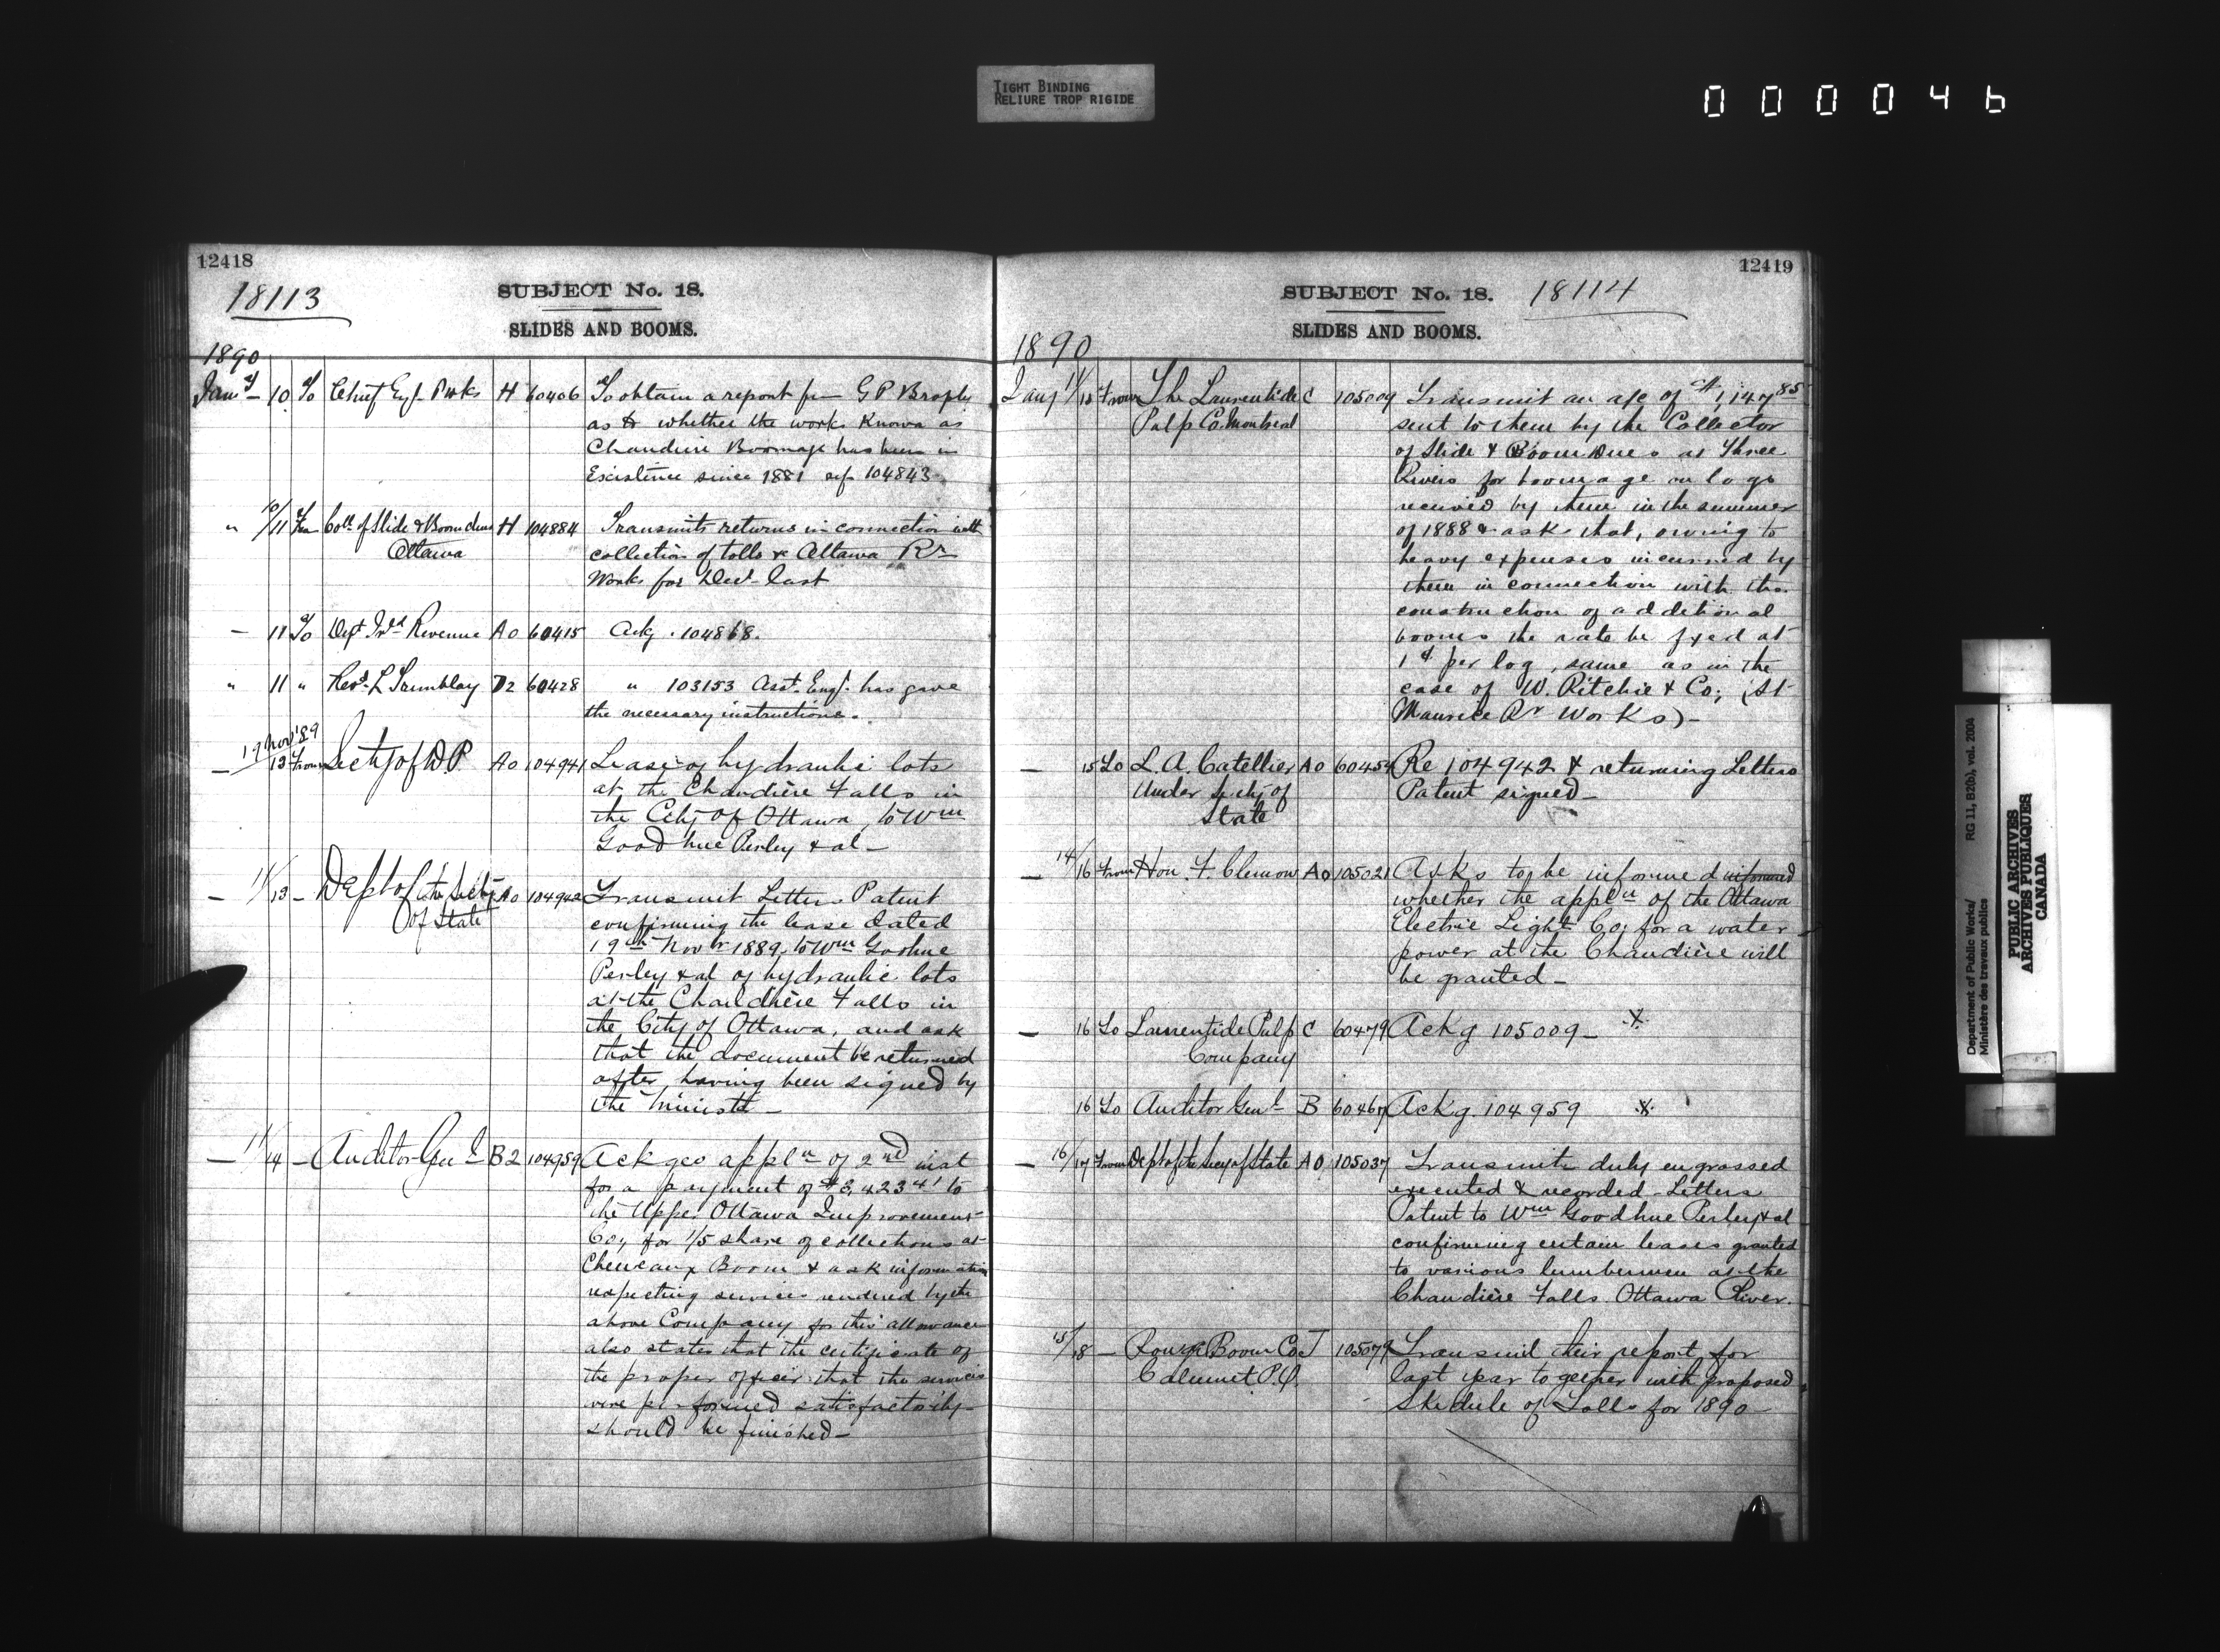 TIGHT BINDING
RELIURE TROP RIGIDE
000046
12418
18113
SUBJECT No. 18.
SLIDES AND BOOMS.
1890
Jany 10 To Chief Engr P. Wks H 60406 To obtain a report fm G P Brophy
as to whether the works Known as
Chaudiere Boomage has been in
Existence since 1881 ref 104843
" 10/11 Fm Coll of Slide & Boom dues H 104884 Transmits returns in connection with
Ottawa collection of tolls & Ottawa Rr
Works for Decr last
— 11 To Dept Inld Revenue A0 60415 Ackg. 104868.
" 11 " Revd. L Tremblay D2 60428 " 103153 Asst. Engr. has gave
the necessary instructions.
19 Nov '89
— 13 From Secty of D.P. A0 104941 Lease of hydraulic lots
at the Chaudière Falls in
the City of Ottawa, to Wm
Goodhue Perley & al —
— 11/13 — Dept of the Secty A0 104942 Transmit Letters Patent
of State confirming the lease dated
19th Novr 1889, to Wm Goohue
Perley & al of hydraulic lots
at the Chaudière Falls in
the City of Ottawa, and ask
that the document be returned
after having been signed by
the Ministr —
— 11/14 — Auditor Genl B2 104959 Ackges appln of 2nd inst
for a payment of $3,423 41 to
the Upper Ottawa Improvement
Co, for 1/5 share of collections at
Cheneaux Boom & ask information
respecting services rendered by the
above Company for this allowance
also states that the certificate of
the proper officer that the services
were performed satisfactorily
should be finished —
12419
SUBJECT No. 18. 18114
SLIDES AND BOOMS.
1890
Jany 11/13 From The Laurentide C 105009 Transmit an a/c of $1,147 85
Pulp Co. Montreal sent to them by the Collector
of Slide & Boom Dues at Three
Rivers for boomage on logs
received by them in the summer
of 1888 & ask that, owing to
heavy expenses incurred by
them in connection with the
construction of additional
booms the rate be fixed at
1 ct per log, same as in the
case of W. Ritchie & Co; (St
Maurice Rr Works) —
— 15 To L. A. Catellier A0 60454 Re 104942 & returning Letters
Under Secty of Patent signed —
State
— 14/16 From Hon. F. Clemow A0 105021 Asks to be informed informed
whether the appln of the Ottawa
Electric Light Co, for a water
power at the Chaudière will
be granted —
— 16 To Laurentide Pulp C 60479 Ackg 105009 —
Company
16 To Auditor Genl B 60467 Ackg. 104959
— 16/17 From Dept of the Secy of State A0 105037 Transmit duly engrossed
executed & recorded Letters
Patent to Wm Goodhue Perley & al
confirming certain leases granted
to various lumbermen at the
Chaudière Falls Ottawa River.
15/18 — Rouge Boom Co J 105079 Transmit their report for
Calumet P.Q. last year together with proposed
Skedule of Tolls for 1890
Department of Public Works/ RG 11, B2(b), vol. 2004
Ministère des travaux publics
PUBLIC ARCHIVES
ARCHIVES PUBLIQUES
CANADA